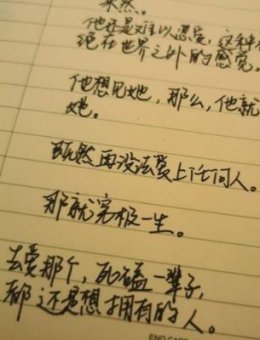 果然。
他还是难以忍受,这种
绝在世界之外的感觉。
他想见她,那么,他就
她。
既然再没法爱上任何人。
那就穷极一生。
去爱那个,死磕一辈子,
都还是想拥有的人。